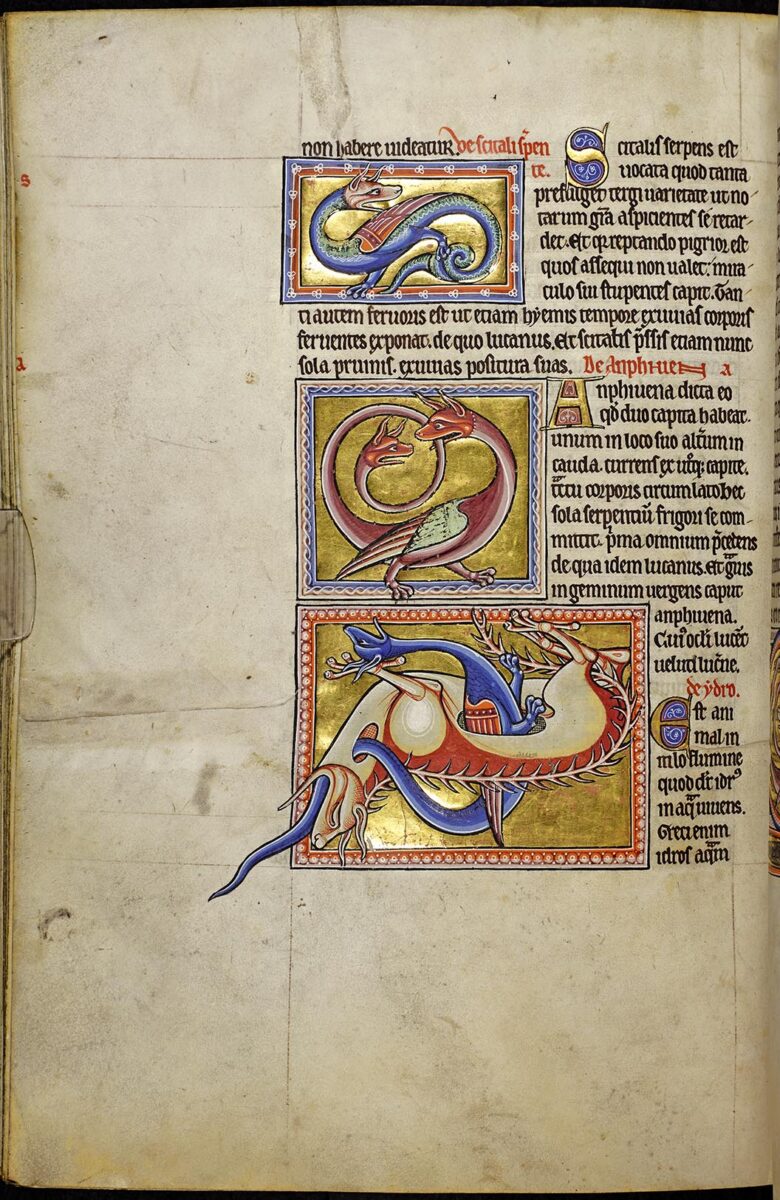 s
non habere uideatur. De scitali s̄pen
te.
Scitalis serpens est
uocata quod tanta
prefulget tergi uarietate ut no
tarum gr̄a aspicientes se retar
det. Et qr reptando pigrior est
quos assequi non ualet: mira
culo sui stupentes capit. Tan
ti autem feruoris est ut etiam hyemis tempore exuuias corporis
feruentes exponat. de quo lucanus. Et scitalis sp̄ssis etiam nunc
sola pruinis. exuuias positura suas. De Anphiuena
a
a
Anphiuena dicta eo
qd̄ duo capita habeat.
unum in loco suo alt̄um in
cauda. currens ex ut̄q; capite.
corporis circumlato hec
sola serpentiū frigori se com
mittit. p̄ma omnium p̄cedens
de qua idem lucanus. Et ḡuis
in geminum uergens caput
anphiuena.
Cui9 oculi lucēt
ueluti luc̄ne.
de ydro.
Est ani
mal in
nilo flumine
quod dr̄ idr9
in aq̄ uiuens.
Greci enim
idros aq̄m